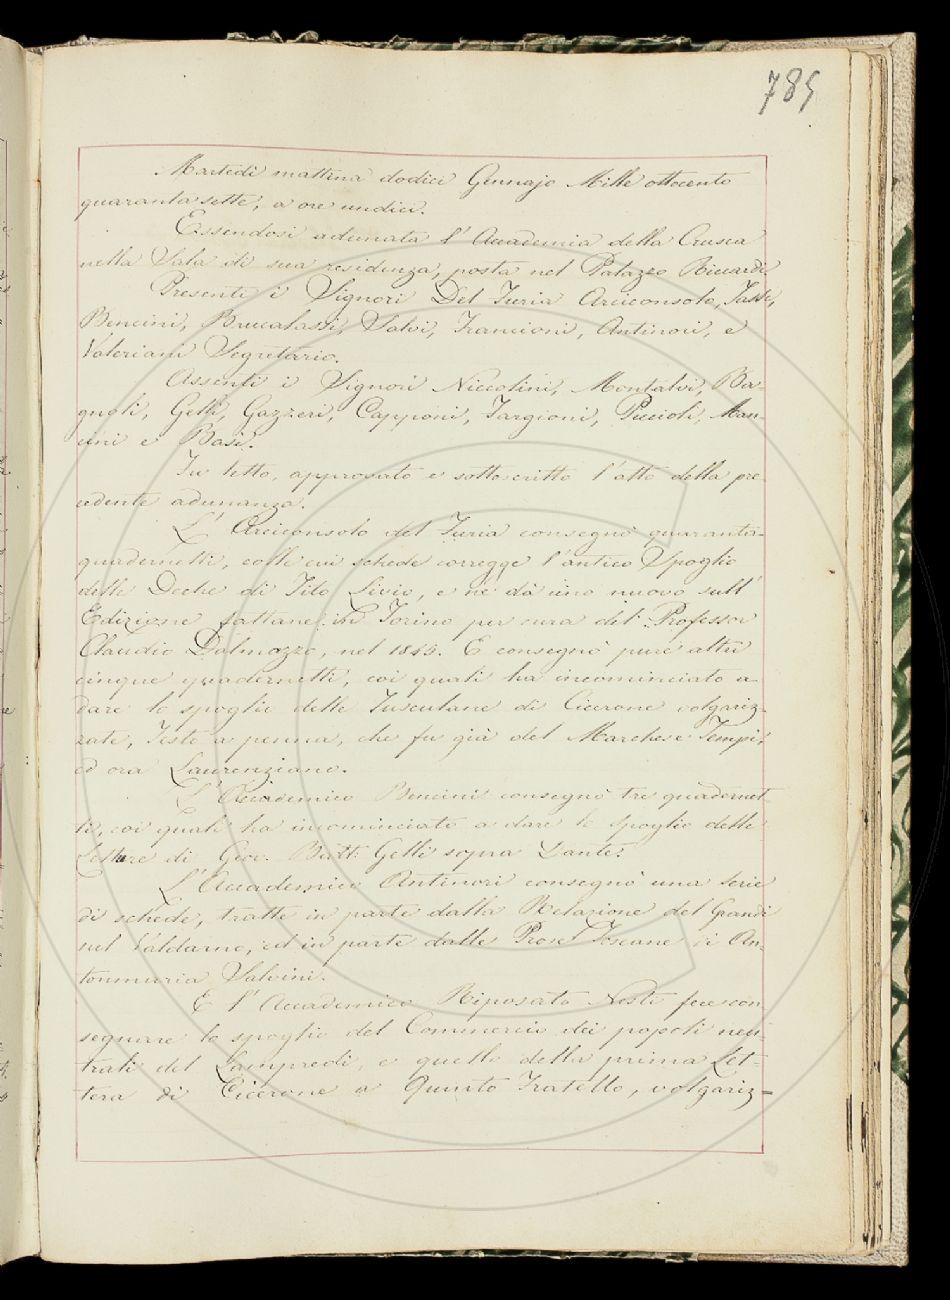 785
Martedì mattina dodici Gennajo Mille ottocento
quaranta sette, a ore undici.
Essendosi adunata l'Accademia della Crusca
nella Sala di sua residenza, posta nel Palazzo Riccardi
Presenti i Signori Del Furia Arciconsolo,
Bencini, Brucalassi, Salvi, Francioni, Antinori, e
Valeriani Segretario.
Assenti i Signori Niccolini, Montalvi, Ba-
gnoli, Gelli, Gazzeri, Capponi, Targioni, Puccioli, Man-
cini e Basi.
Fu letto, approvato e sottoscritto l'atto della pre-
cedente adunanza.
L'Arciconsolo del Furia consegnò quaranta-
quadernetti, colle cui schede corregge l'antico Spoglio
delle Deche di Tito Livio, e ne dà uno nuovo sull'
Edizione fattane in Torino per cura del Professor
Claudio Dalmazzo, nel 1845. E consegnò pure altri
cinque quadernetti, coi quali ha incominciato a
dare lo spoglio delle Tusculane di Cicerone volgariz-
zate, Testo a penna, che fu già del Marchese Tempi,
ed ora Laurenziano.
L'Accademico Bencini consegnò tre quadernet-
ti, coi quali ha incominciato a dare lo spoglio delle
Letture di Giov. Batt: Gelli sopra Dante.
L'Accademico Antinori consegnò una serie
di schede, tratte in parte dalla Relazione del Grandi
nel Valdarno, ed in parte dalle Prose Toscane di An-
tonmaria Salvini.
E l'Accademico Riposato Nesti fece con
segnare lo spoglio del Commercio dei popoli neu-
trali del Lampredi, e quello della prima Let-
tera di Cicerone a Quinto Fratello, volgariz-